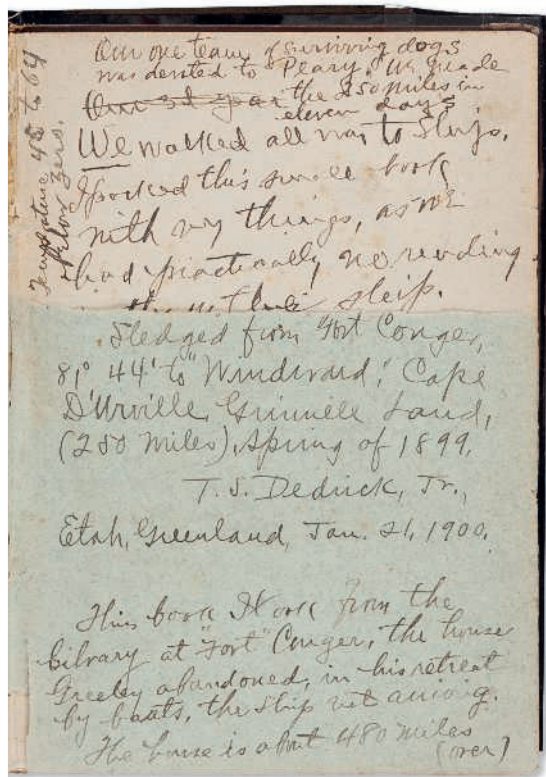 Our one team of surviving dogs
was devoted to "Peary." We made
Our sl year the 250 miles in
eleven days.
We walked all way to ship.
I packed this single book
with my things, as we
had practically no reading
on the ship.
Temperature 48 to 64
below Zero.
Sledged from Fort Conger,
81° 44' to "Windward", Cape
D'Urville, Grinnell Land,
(250 miles), Spring of 1899.
T. S. Dedrick, Jr.,
Etah, Greenland, Jan. 21, 1900.
This book I took from the
library at "Fort" Conger, the house
Greely abandoned, in his retreat
by boats, the ship not arriving.
The house is about 480 miles
(over)